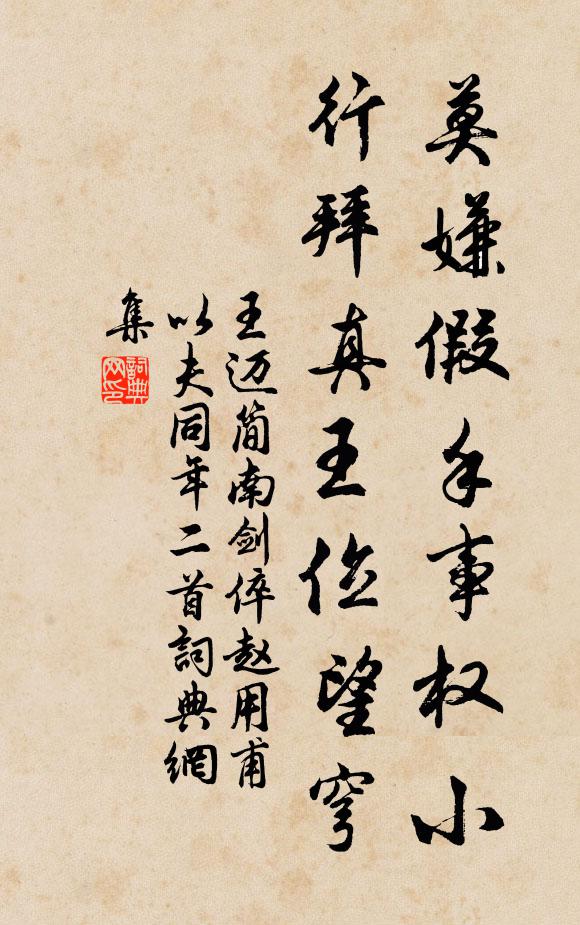 莫嫌假手事权小
行拜真王位望穹
王迈简南剑倅赵用甫
以夫同年二首詞典網
集
詞典
网印